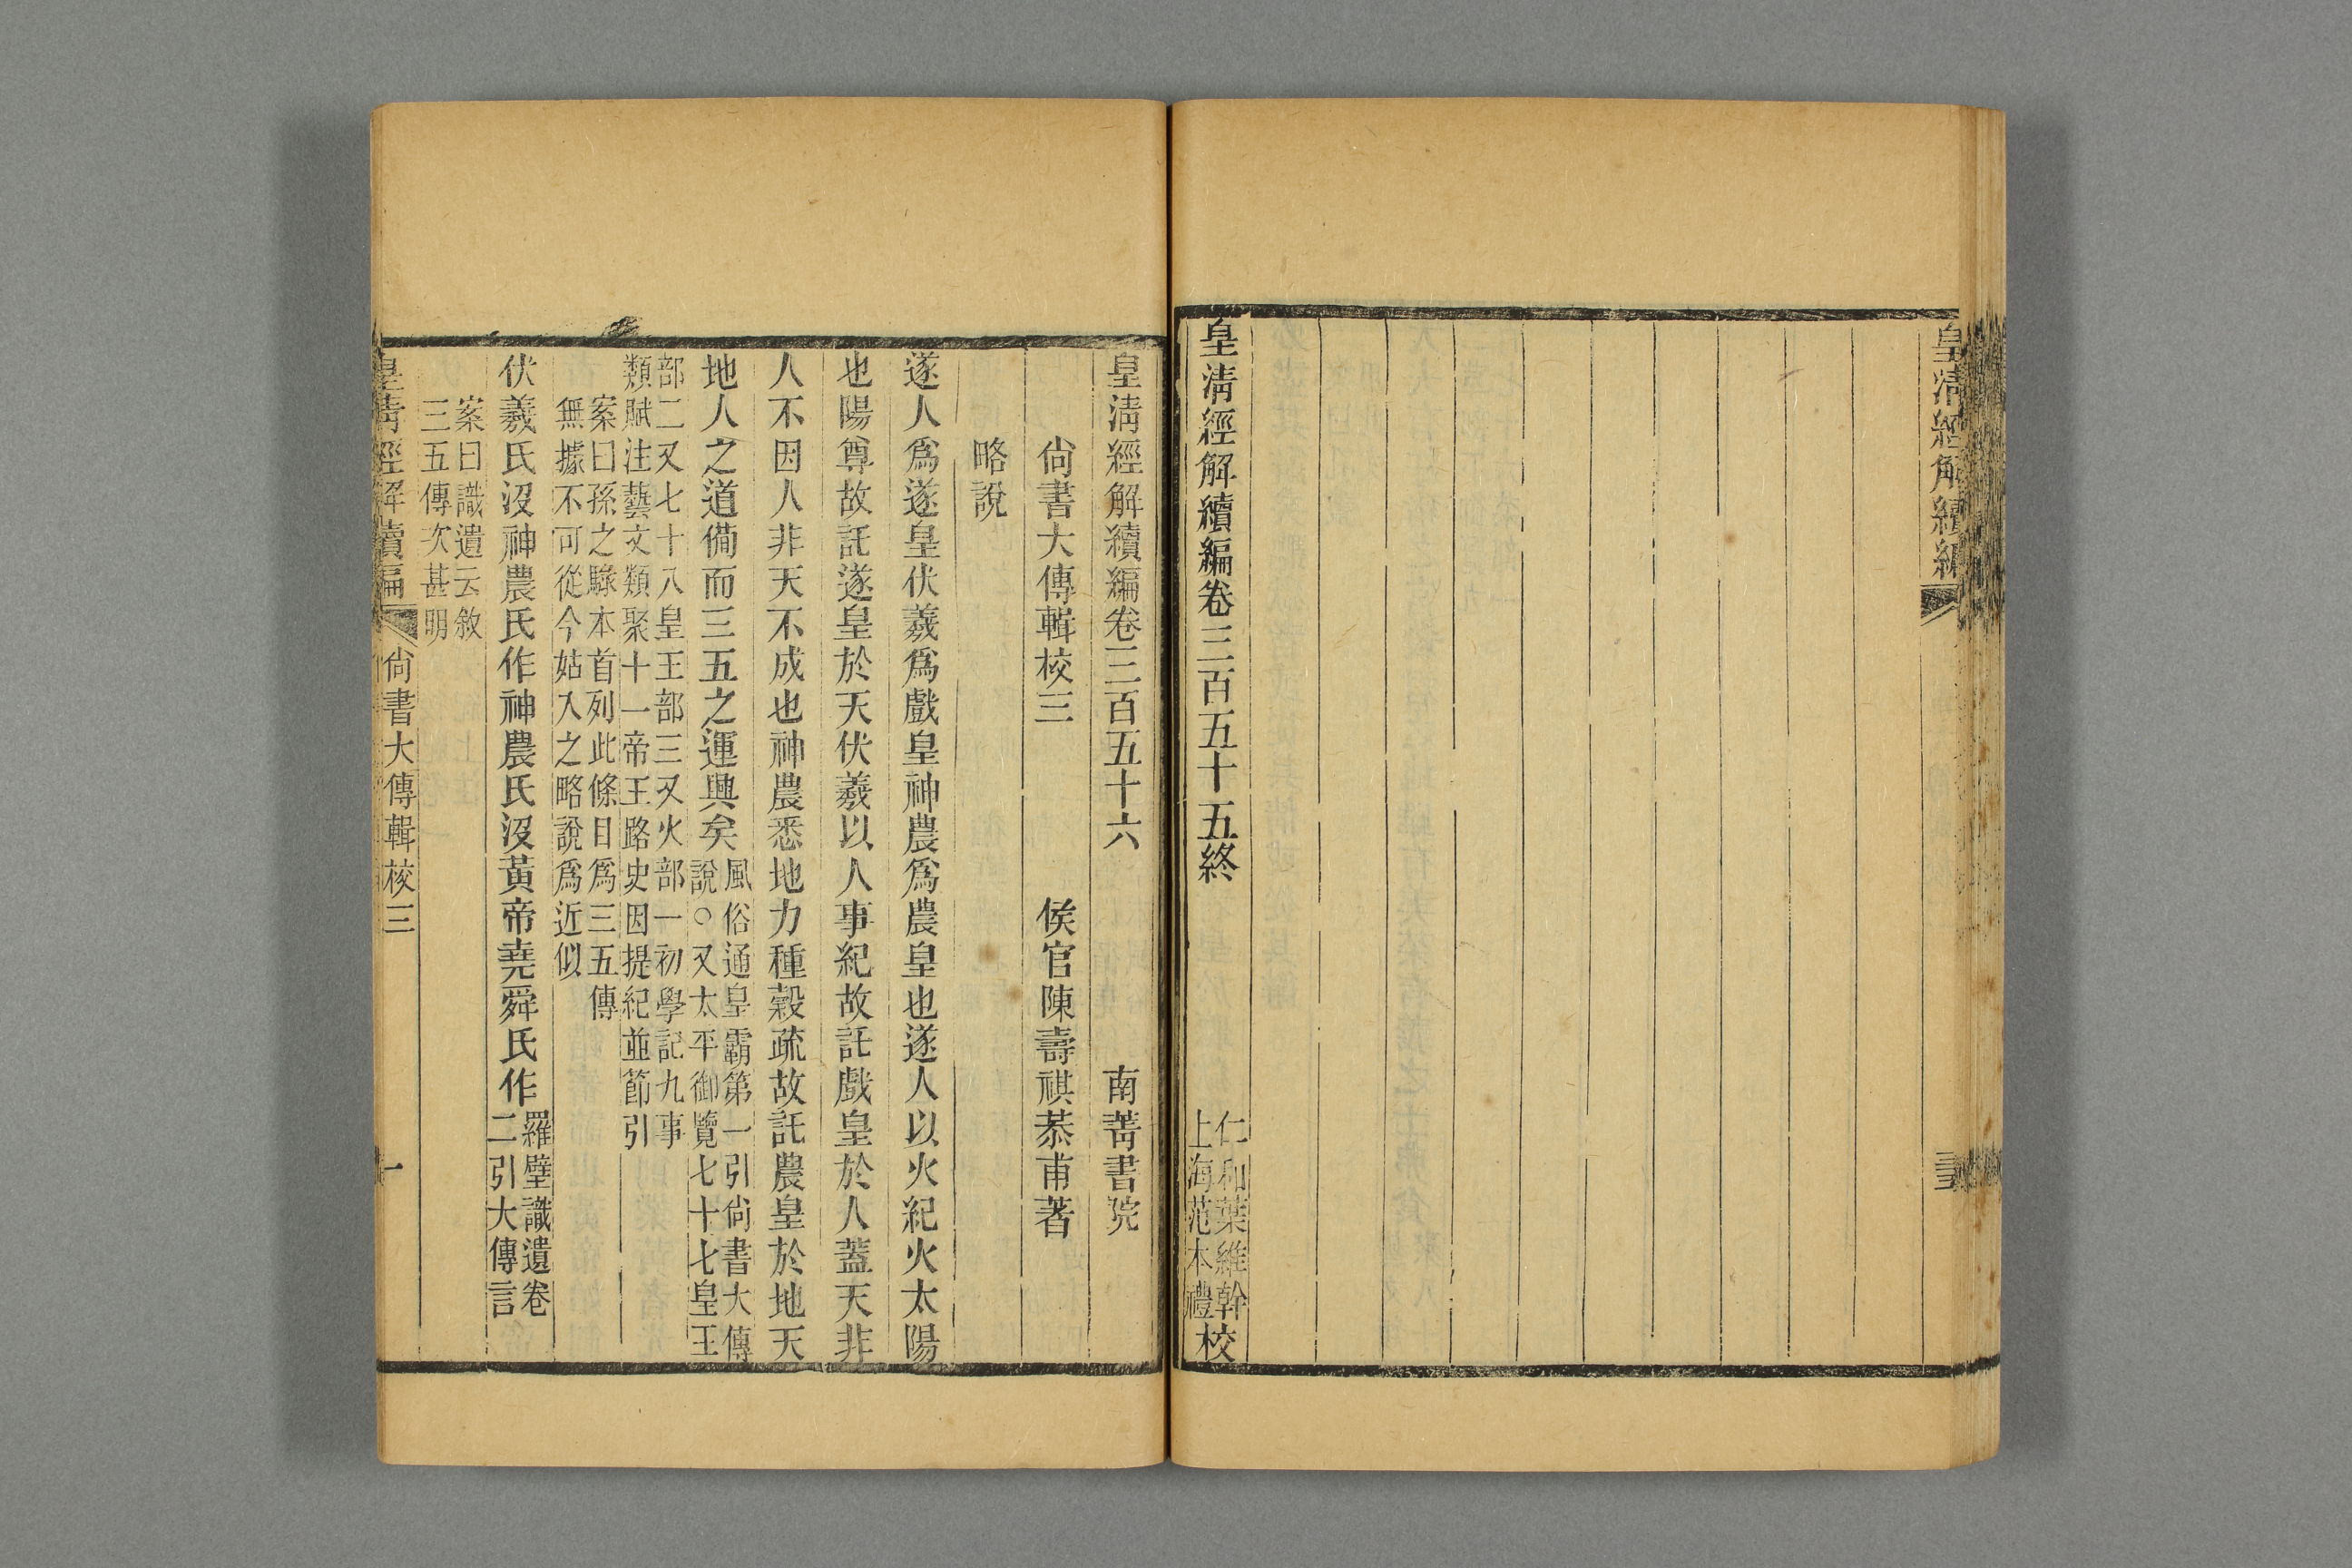 皇清經解續編
皇清經解續編卷三百五十五終
仁和葉維幹
上海范本禮
校
皇清經解續編卷三百五十六
南菁書院
尚書大傳輯校三
侯官陳壽祺恭甫著
略說
遂人爲遂皇伏羲爲戲皇神農爲農皇也遂人以火紀火太陽
也陽尊故託遂皇於天伏羲以人事紀故託戲皇於人蓋天非
人不因人非天不成也神農悉地力種穀疏故託農皇於地天
地人之道備而三五之運興矣
風俗通皇霸第一引尚書大傳
說○又太平御覽七十七皇王
部二又七十八皇王部三又火部一初學記九事
類賦注藝文類聚十一帝王路史因提紀並節引
案曰孫之騄本首列此條曰爲三五傳
無據不可從今姑入之略說爲近似
伏羲氏沒神農氏作神農氏沒黃帝堯舜氏作
羅璧識遺卷
二引大傳言
案曰識遺云敘
三五傳次甚明
皇清經解續編
尚書大傳輯校三
一